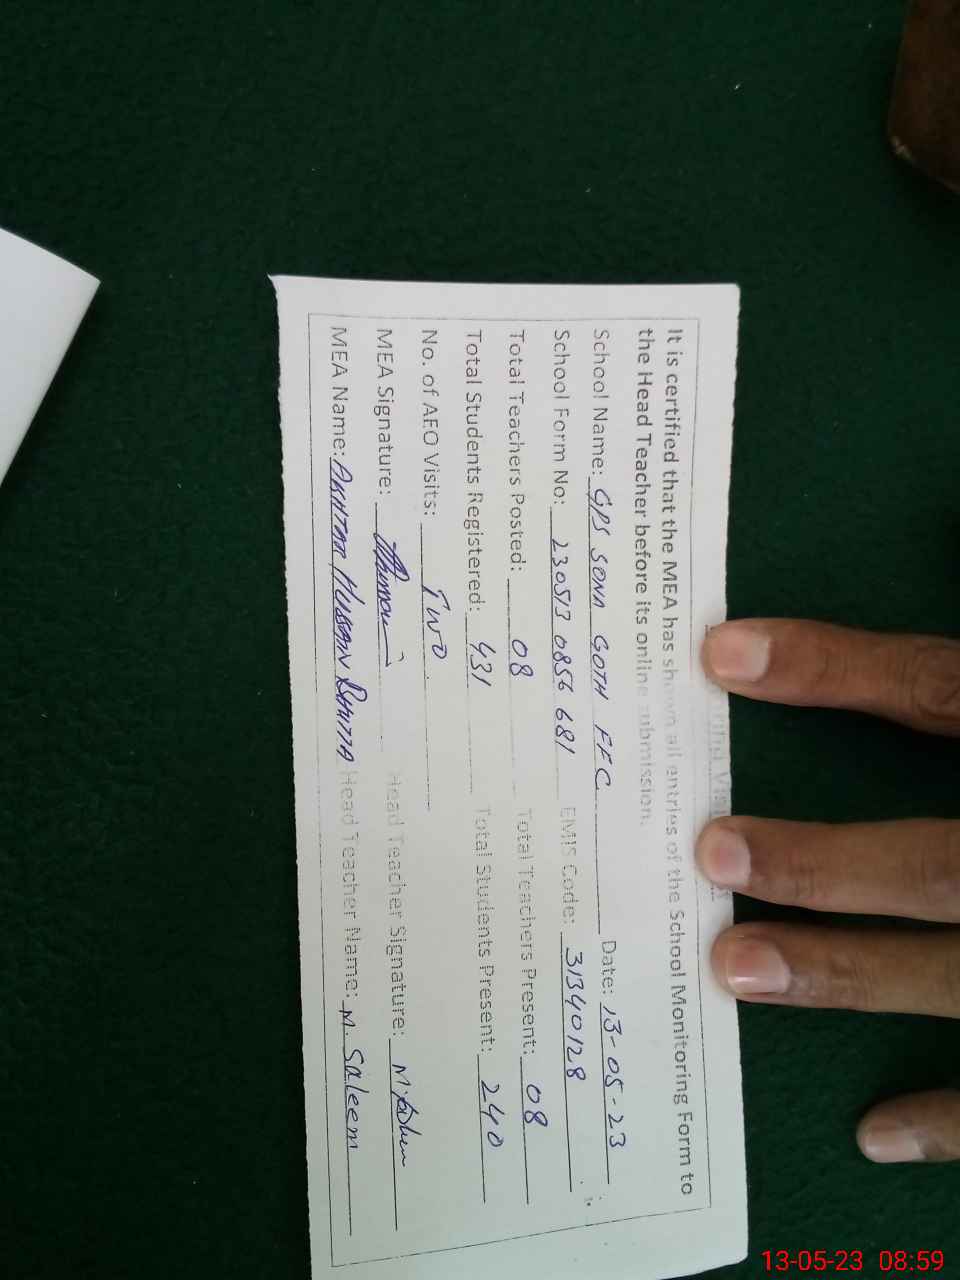 It is certified that the MEA has shown all entries of the School Monitoring Form to
the Head Teacher before its online submission.
School Name: GPS SONA GOTH FFC Date: 13-05-23
School Form No: 230513 0856 681 EMIS Code: 31340128
Total Teachers Posted: 08 Total Teachers Present: 08
Total Students Registered: 431 Total Students Present: 240
No. of AEO Visits: Two
MEA Signature: Head Teacher Signature:
MEA Name: AKHTAR HUSSAIN BHUTTA Head Teacher Name: M. Saleem
13-05-23 08:59